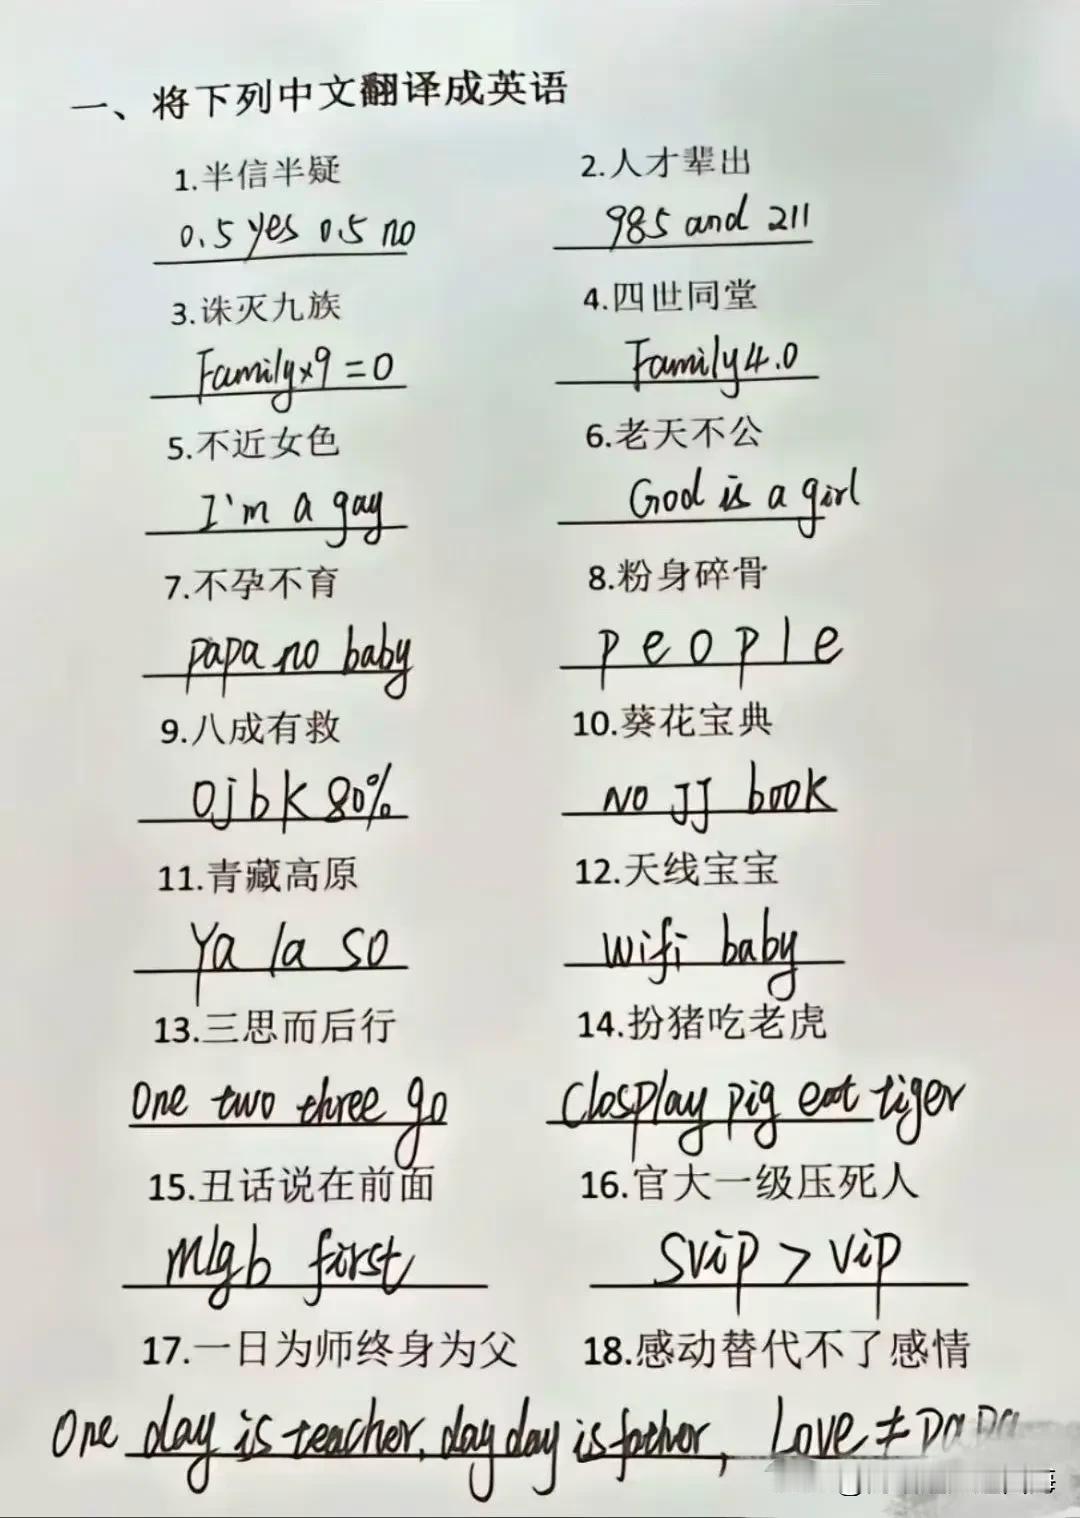 一、将下列中文翻译成英语
1.半信半疑
0.5 yes 0.5 no
2.人才辈出
985 and 211
3.诛灭九族
Family×9=0
4.四世同堂
Family 4.0
5.不近女色
I'm a gay
6.老天不公
God is a girl
7.不孕不育
papa no baby
8.粉身碎骨
p e o p l e
9.八成有救
Ojbk 80%
10.葵花宝典
No JJ book
11.青藏高原
Ya la so
12.天线宝宝
wifi baby
13.三思而后行
One two three go
14.扮猪吃老虎
Closplay pig eat tiger
15.丑话说在前面
mlgb first
16.官大一级压死人
Svip > vip
17.一日为师终身为父
One day is teacher, day day is father,
18.感动替代不了感情
Love ≠ papa